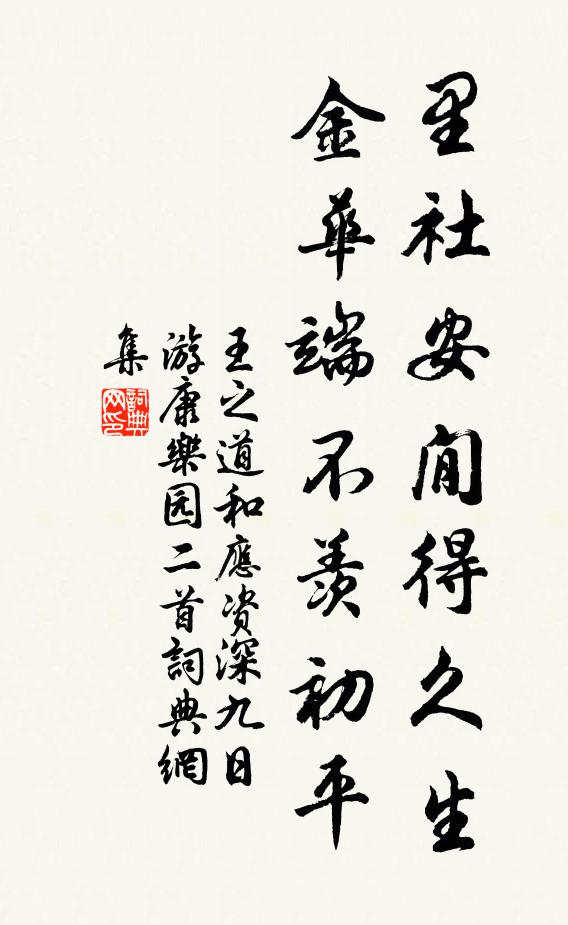 里社安閒得久生
金華端不羨初平
王之道和應资深九日
游康樂园二首詞典網
集
詞典
网印